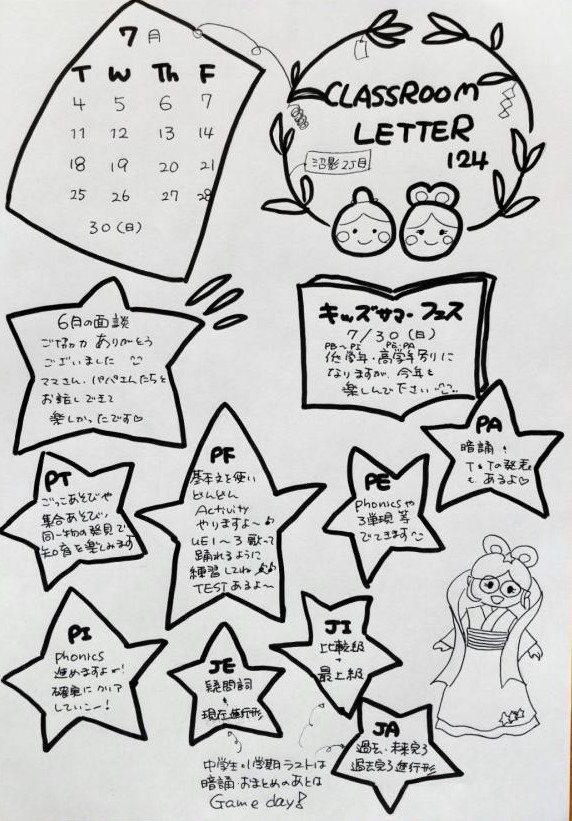 7月
T W Th F
4 5 6 7
11 12 13 14
18 19 20 21
25 26 27 28
30(日)
CLASSROOM
LETTER
124
沼影2丁目
6月の面談
ありがとう
ございました
ママさん、パパさんたちと
お話しできて
楽しかったです♡
キッズサマーフェス
7/30(日)
PB~PI PE・PA
低学年・高学年別に
なりますが、今年も
楽しんで下さい
PA
暗誦!
T&Tの発表
もあるよ♡
PT
ごっこあそびや
集合あそび、
同一物の発見で
知育を楽しみます
PF
基本文を使い
どんどん
Activity
やりますよ~♪
UE1~3歌って
踊れるように
練習してね♪
TESTあるよ~
PE
Phonicsや
3単現 等
でてきます
PI
Phonics
進めますよー!
確実にクリア
していこー!
JE
疑問詞
&
現在進行形
JI
比較級
+
最上級
JA
過去・未来完了
過去完了進行形
中学生・1学期ラストは
暗誦・おまとめのあとは
Game day!